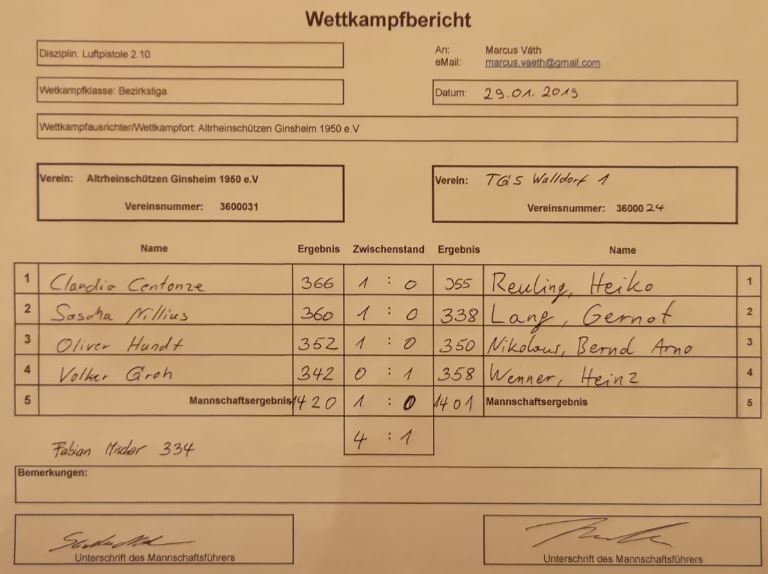 Wettkampfbericht
Disziplin: Luftpistole 2.10
An: Marcus Väth
eMail: marcus.vaeth@gmail.com
Wetkampfklasse: Bezirksliga
Datum: 29.01.2019
Wettkampfausrichter/Wettkampfort: Altrheinschützen Ginsheim 1950 e.V
Verein: Altrheinschützen Ginsheim 1950 e.V
Verein: TGS Walldorf 1
Vereinsnummer: 3600031
Vereinsnummer: 3600024
Name Ergebnis Zwischenstand Ergebnis Name
1 Claudio Centonze 366 1 : 0 355 Reuling, Heiko 1
2 Sascha Nillius 360 1 : 0 338 Lang, Gernot 2
3 Oliver Hundt 352 1 : 0 350 Nikolaus, Bernd Arno 3
4 Volker Groh 342 0 : 1 358 Wenner, Heinz 4
5 Mannschaftsergebnis 1420 1 : 0 1401 Mannschaftsergebnis 5
4 : 1
Fabian 334
Bemerkungen:
Unterschrift des Mannschaftsführers
Unterschrift des Mannschaftsführers